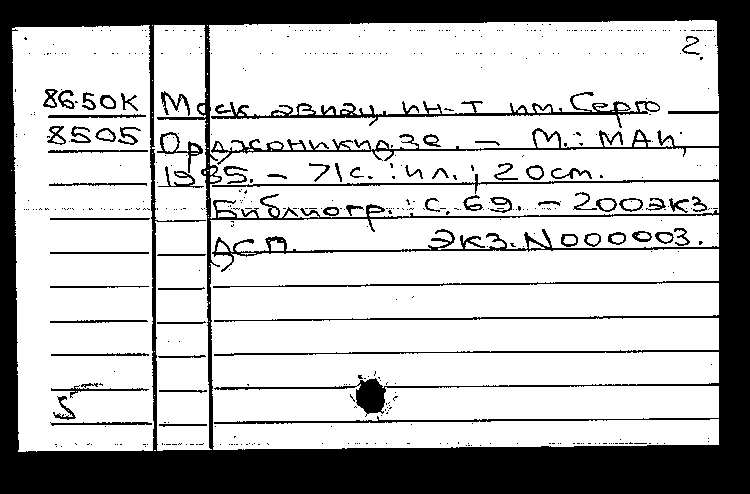 2.
86-50К Моск. авиац. ин-т им. Серго
8505 Орджоникидзе. - М.: МАИ,
1985. - 71с. : ил. ; 20см.
Библиогр. : с. 69. - 200экз.
ДСП. Экз.N000003.
5